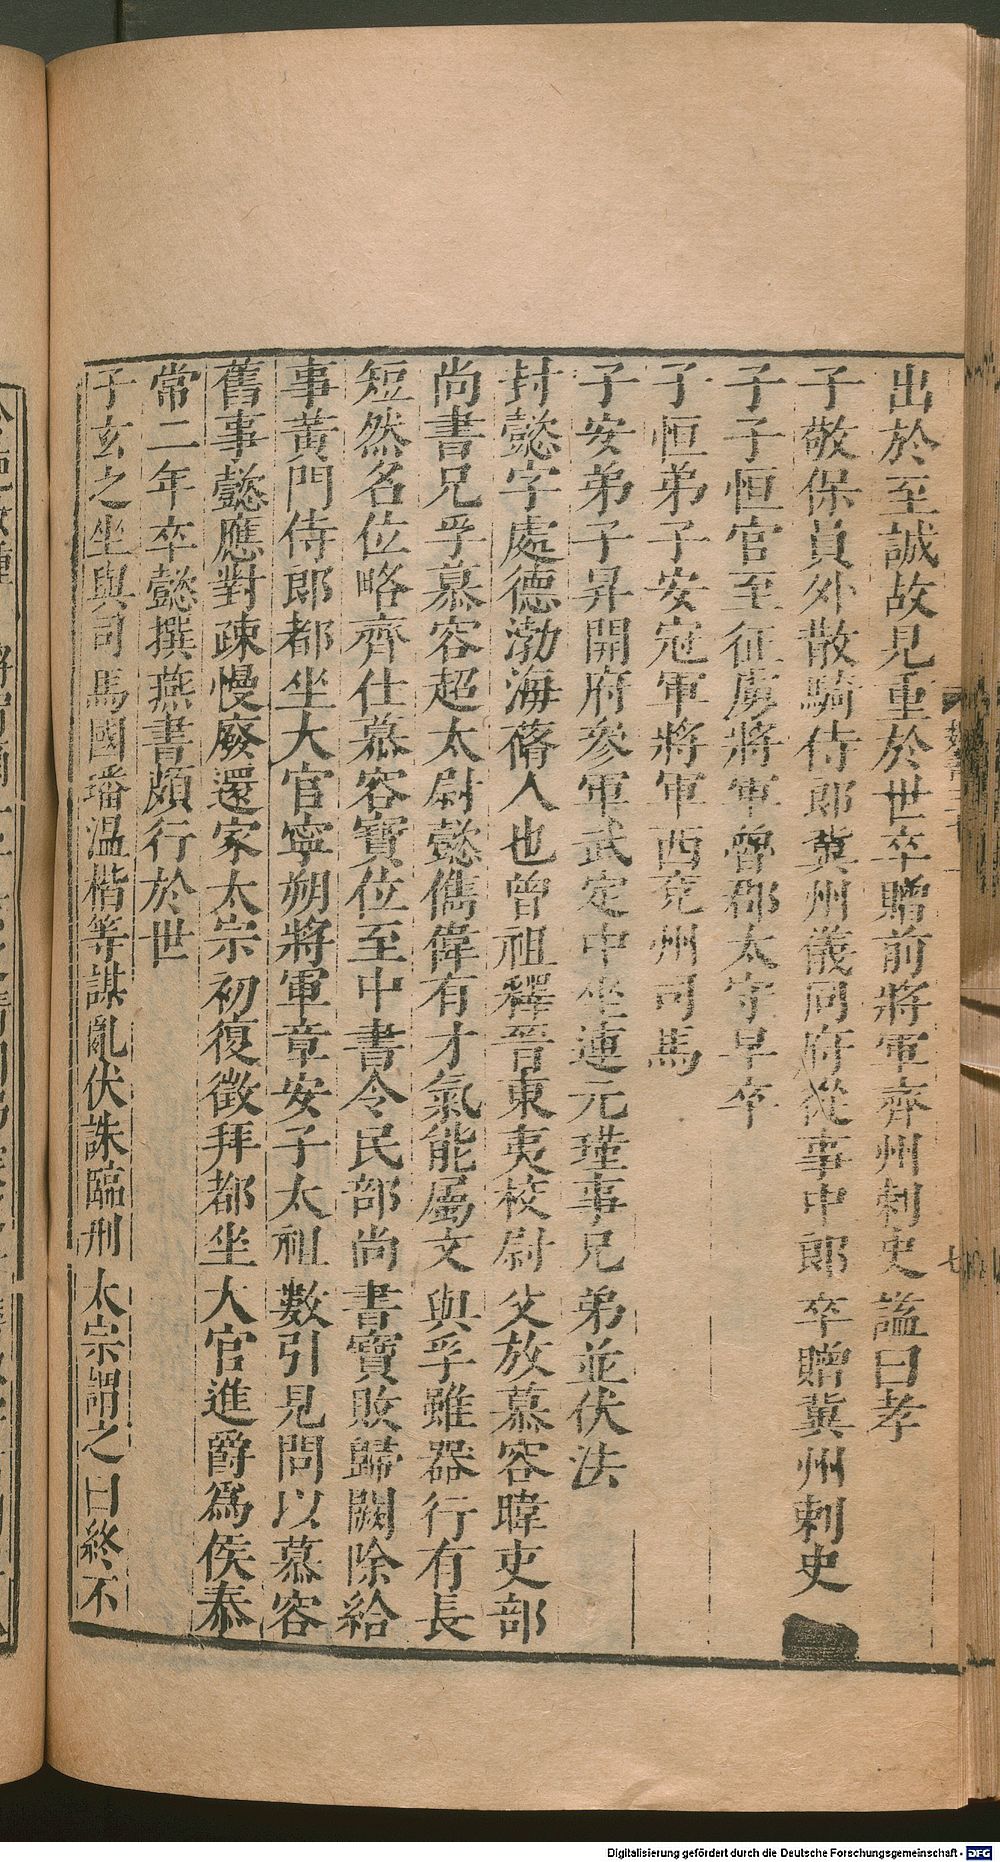 出於至誠故見重於世卒贈前將軍齊州刺史謚曰孝
子敬保員外散騎侍郎冀州儀同府從事中郎卒贈冀州刺史
子子恒官至征虜將軍魯郡太守早卒
子恒弟子安冠軍將軍西兗州司馬
子安弟子昇開府參軍武定中坐連元瑾事兄弟並伏法
封懿字處德渤海蓨人也曾祖釋晉東夷校尉父放慕容暐吏部
尚書兄孚慕容超太尉懿儁偉有才氣能屬文與孚雖器行有長
短然名位略齊仕慕容寶位至中書令民部尚書寶敗歸闕除給
事黃門侍郎都坐大官寧朔將軍章安子太祖數引見問以慕容
舊事懿應對疎慢廢還家太宗初復徵拜都坐大官進爵爲侯泰
常二年卒懿撰燕書頗行於世
子玄之坐與司馬國璠温楷等謀亂伏誅臨刑太宗謂之曰終不
七
Digitalisierung gefördert durch die Deutsche Forschungsgemeinschaft - DFG